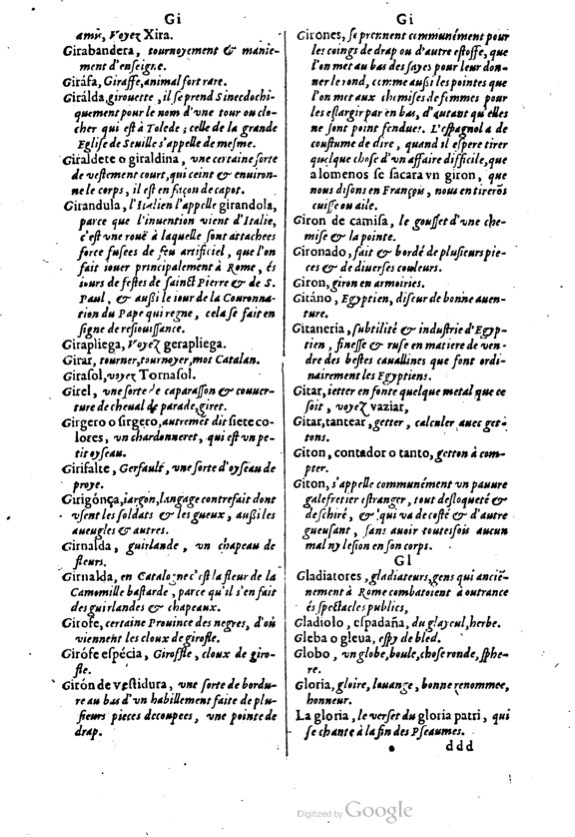 Gi
amir, Voyez Xira.
Girabandera, tournoyement & manie-
ment d'enseigne.
Giráfa, Giraffe, animal fort rare.
Girálda, girouette, il se prend Sinecdochi-
quement pour le nom d'vne tour ou clo-
cher qui est à Tolede; celle de la grande
Eglise de Seuille s'appelle de mesme.
Giraldete o giraldina, vne certaine sorte
de vestement court, qui ceint & environ-
ne le corps, il est en façon de capot.
Girandula, l'Italien l'appelle girandola,
parce que l'inuention vient d'Italie,
c'est vne rouë à laquelle sont attachees
force fusees de feu artificiel, que l'on
fait iouer principalement à Rome, és
iours de festes de sainct Pierre & de S.
Paul, & außi le iour de la Couronna-
tion du Pape qui regne, cela se fait en
signe de resiouissance.
Girapliega, Voyez gerapliega.
Girar, tourner, tournoyer, mot Catalan.
Girasol, voyez Tornasol.
Girel, vne sorte de caparasson & couuer-
ture de cheual de parade, giret.
Girgero o sirgero, autremēt dit siete co-
lores, vn chardonneret, qui est vn pe-
tit oyseau.
Girifalte, Gerfault, vne sorte d'oyseau de
proye.
Girigónça, iargon, langage contrefait dont
vsent les soldats & les gueux, außi les
aueugles & autres.
Girnalda, guirlande, vn chapeau de
fleurs.
Girnalda, en Catalogne c'est la fleur de la
Camomille bastarde, parce qu'il s'en fait
des guirlandes & chapeaux.
Girofe, certaine Prouince des negres, d'où
viennent les cloux de girofle.
Girófe espécia, Giroffle, cloux de giro-
fle.
Girón de vestidura, vne sorte de bordu-
re au bas d'vn habillement faite de plu-
sieurs pieces decoupees, vne pointe de
drap.
Gi
Girones, se prennent communément pour
les coings de drap ou d'autre estoffe, que
l'on met au bas des sayes pour leur don-
ner le rond, comme außi les pointes que
l'on met aux chemises de femmes pour
les eslargir par en bas, d'autant qu'elles
ne sont point fendues. L'espagnol a de
coustume de dire, quand il espere tirer
quelque chose d'vn affaire difficile, que
alomenos se sacara vn giron, que
nous disons en François, nous en tirerōs
cuisse ou aile.
Giron de camisa, le gousset d'vne che-
mise & la pointe.
Gironado, fait & bordé de plusieurs pie-
ces & de diverses couleurs.
Giron, giron en armoiries.
Gitáno, Egyptien, diseur de bonne auen-
ture.
Gitaneria, subtilité & industrie d'Egyp-
tien, finesse & ruse en matiere de ven-
dre des bestes cauallines que font ordi-
nairement les Egyptiens.
Gitar, ietter en fonte quelque metal que ce
soit, voyez vaziar,
Gitar, tantear, getter, calculer auec get-
tons.
Giton, contador o tanto, getton à com-
pter.
Giton, s'appelle communément vn pauure
galefretier estranger, tout desloqueté &
deschiré, & qui va de costé & d'autre
gueusant, sans auoir toutesfois aucun
mal ny lesion en son corps.
Gl
Gladiatores, gladiateurs, gens qui anciē-
nement à Rome combatoient à outrance
és spectacles publics,
Gladiolo, espadaña, du glayeul, herbe.
Gleba o gleua, espy de bled.
Globo, vn globe, boule, chose ronde, sphe-
re.
Gloria, gloire, louange, bonne renommee,
honneur.
La gloria, le verset du gloria patri, qui
se chante à la fin des Pseaumes.
ddd
Digitized by Google